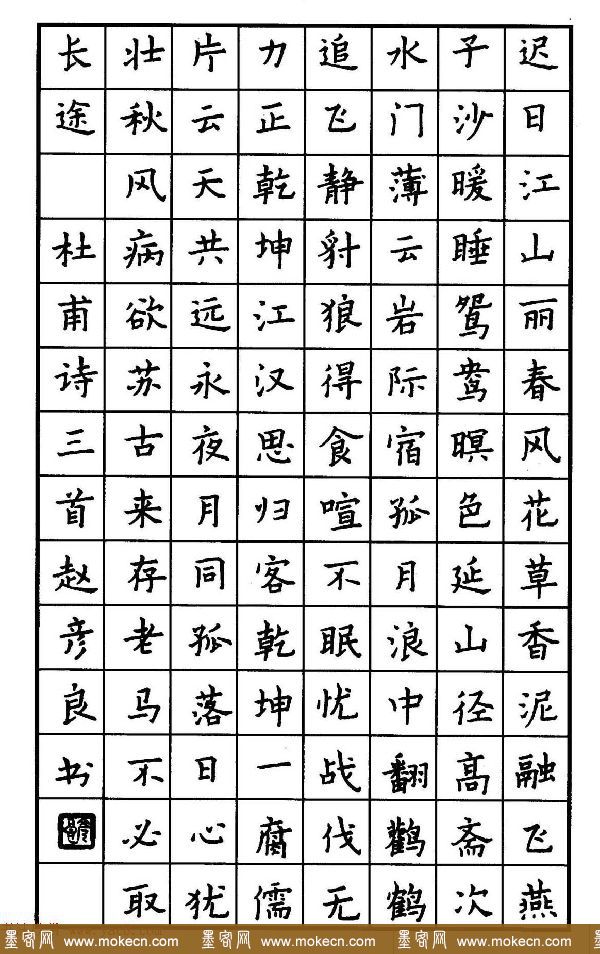 迟日江山丽春风花草香泥融飞燕
子沙暖睡鸳鸯暝色延山径高斋次
水门薄云岩际宿孤月浪中翻鹳鹤
追飞静豺狼得食喧不眠忧战伐无
力正乾坤江汉思归客乾坤一腐儒
片云天共远永夜月同孤落日心犹
壮秋风病欲苏古来存老马不必取
长途 杜甫诗三首赵彦良书
墨客网 www.mokecn.com 墨客网 www.mokecn.com 墨客网 www.mokecn.com